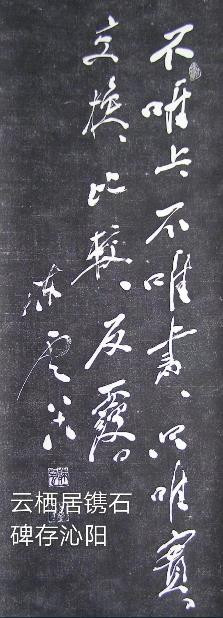 不唯上、不唯书、只唯实、
交换、比较、反覆。
陈云
云栖居镌石
碑存沁阳